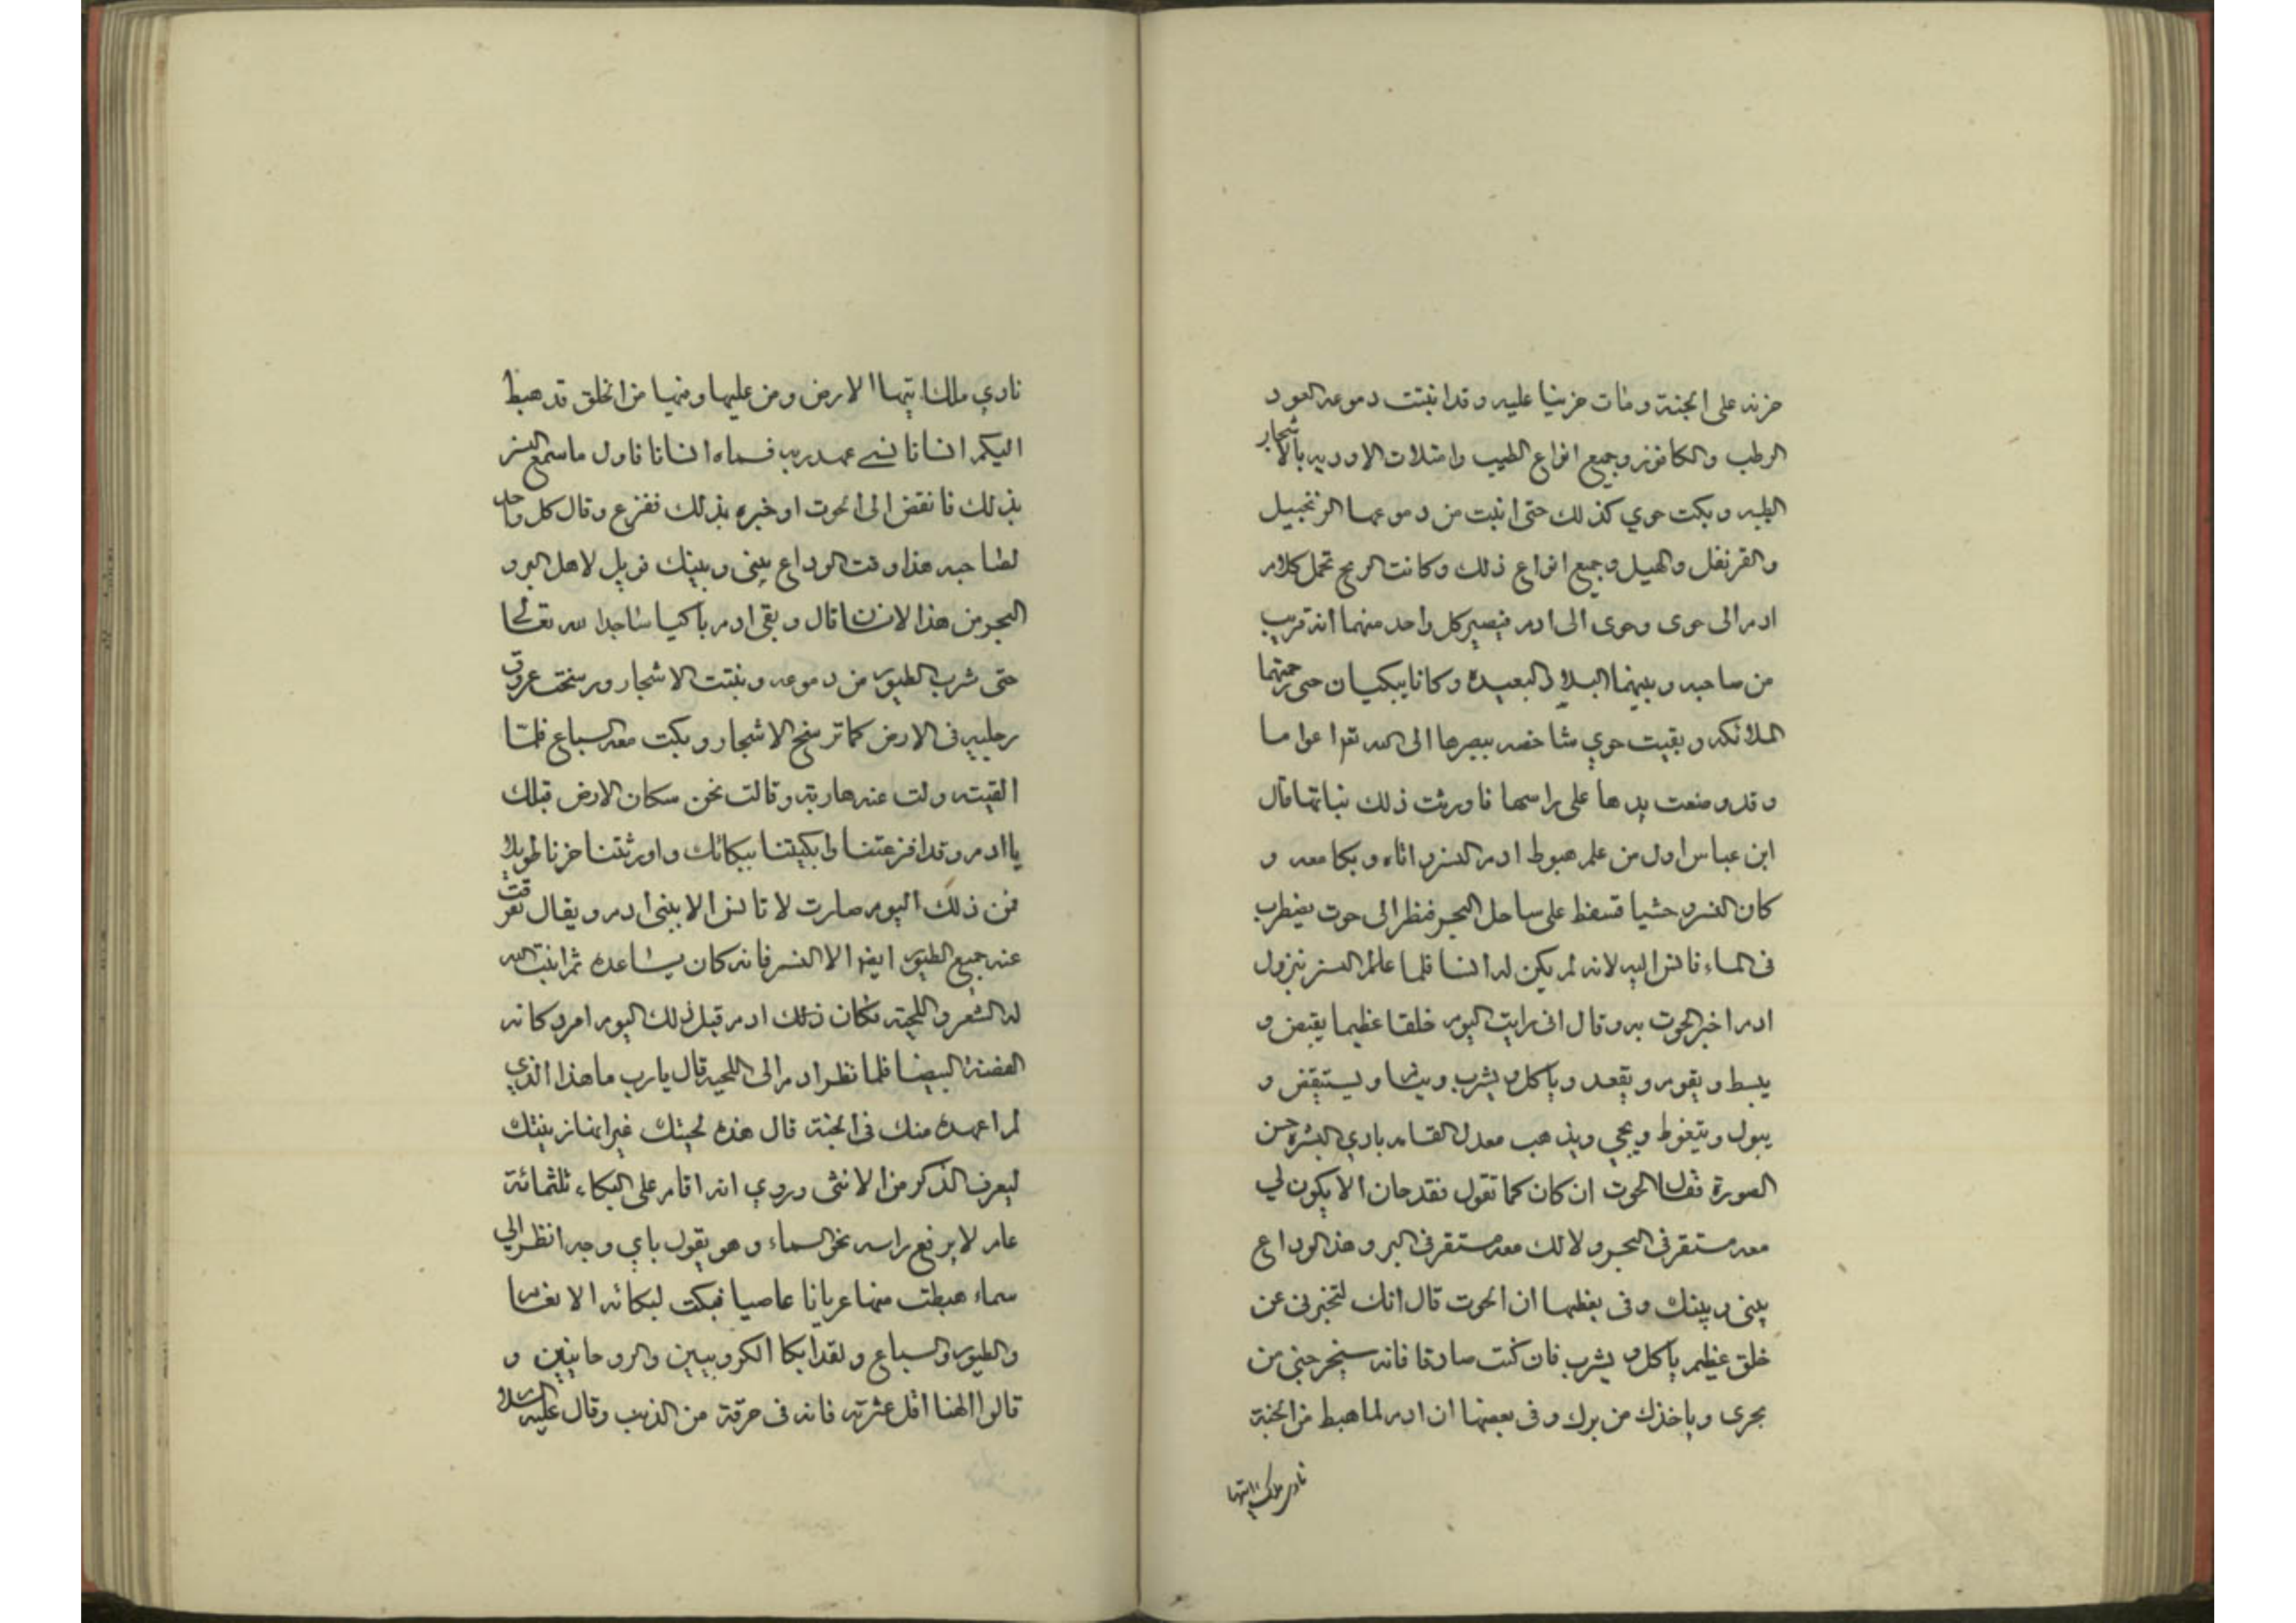 حزنه على الجنة ومات حزينا عليه وقد انبتت دموعه العود
الرطب والكافور وجميع انواع الطيب وامتلات الاودية بالاشجار
الطيبه وبكت حوي كذلك حتى انبت من دموعها الزنجبيل
والقرنفل والهيل وجميع انواع ذلك وكانت الريح تحمل كلام
ادم الى حوى وحوى الى ادم فيصير كل واحد منهما انه قريب
من صاحبه وبينهما البلاد البعيدة وكانا يبكيان حتى رحمتهما
الملائكه وبقيت حوي شاخصه ببصرها الى الله اعواما
وقد وضعت يدها على راسها فاورثت ذلك بناتها قال
ابن عباس اول من علم هبوط ادم النسر واتاه وبكا معه و
كان النسر وحشيا فسقط على ساحل البحر فنظر الى حوت يضطرب
فى الماء فانس اليه لانه لم يكن له انسا فلما علم النسر بنزول
ادم اخبر الحوت به وقال انى رايت اليوم خلقا عظيما يقبض و
يبسط ويقوم ويقعد وياكل ويشرب وينام ويستيقض و
يبول ويتغوط ويجي ويذهب معدل القامه بادي البشره حسن
الصورة فقال الحوت ان كان كما تقول فقد حان الا يكون لي
معه مستقر فى البحر ولا لك معه مستقر فى البر وهذا الوداع
بينى وبينك وفى بعظها ان الحوت قال انك لتخبرنى عن
خلق عظيم ياكل ويشرب فان كنت صادقا فانه سيخرجنى من
بحرى وياخذك من برك وفى بعضها ان ادم لما هبط من الجنة
نادى ملك ايتها
نادي ملك ايتها الارض ومن عليها وفيها من الخلق قد هبط
اليكم انسانا نسى عهد ربه فسماه انسانا فاول ما سمع النسر
بذلك فانقض الى الحوت اوخبره بذلك ففزع وقال كل واحد
لصاحبه هذا وقت الوداع بينى وبينك فويل لاهل البر و
البحر من هذا الانسان قال وبقى ادم باكيا ساجدا لله تعالى
حتى شرب الطيور من دموعه ونبتت الاشجار ورسخت عروق
رجليه فى الارض كما ترسخ الاشجار وبكت معه السباع فلما
القيته ولت عنه هاربة وقالت نحن سكان الارض قبلك
يا ادم وقد افزعتنا وابكيتنا ببكائك واورثتنا حزنا طويلا
فمن ذلك اليوم صارت لا تانس الا ببنى ادم ويقال تفرقت
عنه جميع الطيور ايضا الا النسر فانه كان يساعده ثم انبت الله
له الشعر واللحية فكان ذلك ادم قبل ذلك اليوم امرد كانه
الفضة البيضا فلما نظر ادم الى اللحيه قال يارب ما هذا الذي
لم اعهده منك فى الجنة قال هذه لحيتك غير انها زينتك
ليعرف الذكر من الانثى وروي انه اقام على البكاء ثلثمائة
عام لا يرفع راسه نحو السماء وهو يقول باي وجه انظر الي
سماء هبطت منها عريانا عاصيا فبكت لبكائه الانعام
والطيور والسباع ولقد ابكا الكروبيين والروحانيين و
قالوا الهنا اقل عثرته فانه فى حرقة من الذنب وقال عليه السلام